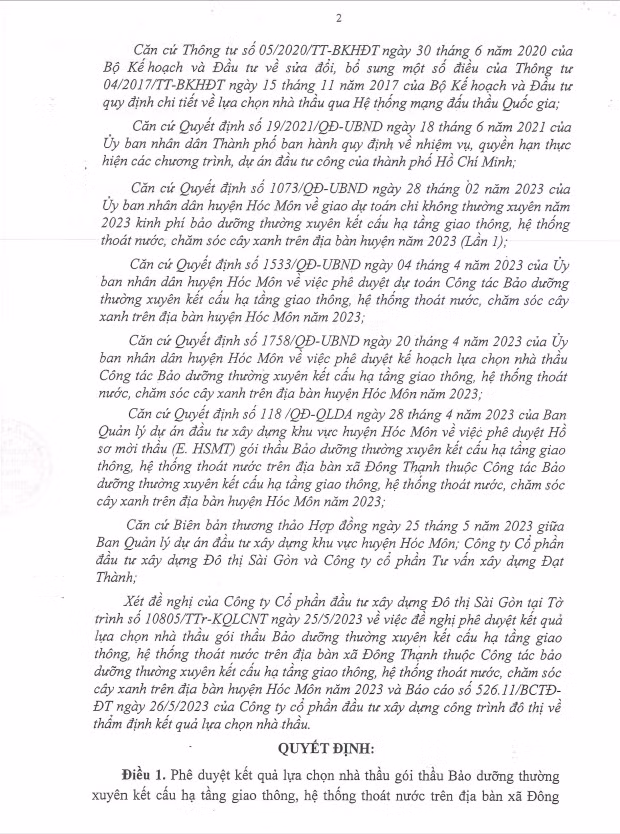 2
Căn cứ Thông tư số 05/2020/TT-BKHĐT ngày 30 tháng 6 năm 2020 của
Bộ Kế hoạch và Đầu tư về sửa đổi, bổ sung một số điều của Thông tư
04/2017/TT-BKHĐT ngày 15 tháng 11 năm 2017 của Bộ Kế hoạch và Đầu tư
quy định chi tiết về lựa chọn nhà thầu qua Hệ thống mạng đấu thầu Quốc gia;
Căn cứ Quyết định số 19/2021/QĐ-UBND ngày 18 tháng 6 năm 2021 của
Ủy ban nhân dân Thành phố ban hành quy định về nhiệm vụ, quyền hạn thực
hiện các chương trình, dự án đầu tư công của thành phố Hồ Chí Minh;
Căn cứ Quyết định số 1073/QĐ-UBND ngày 28 tháng 02 năm 2023 của
Ủy ban nhân dân huyện Hóc Môn về giao dự toán chi không thường xuyên năm
2023 kinh phí bảo dưỡng thường xuyên kết cấu hạ tầng giao thông, hệ thống
thoát nước, chăm sóc cây xanh trên địa bàn huyện năm 2023 (Lần 1);
Căn cứ Quyết định số 1533/QĐ-UBND ngày 04 tháng 4 năm 2023 của Ủy
ban nhân dân huyện Hóc Môn về việc phê duyệt dự toán Công tác Bảo dưỡng
thường xuyên kết cấu hạ tầng giao thông, hệ thống thoát nước, chăm sóc cây
xanh trên địa bàn huyện Hóc Môn năm 2023;
Căn cứ Quyết định số 1758/QĐ-UBND ngày 20 tháng 4 năm 2023 của Ủy
ban nhân dân huyện Hóc Môn về việc phê duyệt kế hoạch lựa chọn nhà thầu
Công tác Bảo dưỡng thường xuyên kết cấu hạ tầng giao thông, hệ thống thoát
nước, chăm sóc cây xanh trên địa bàn huyện Hóc Môn năm 2023;
Căn cứ Quyết định số 118 /QĐ-QLDA ngày 28 tháng 4 năm 2023 của Ban
Quản lý dự án đầu tư xây dựng khu vực huyện Hóc Môn về việc phê duyệt Hồ
sơ mời thầu (E. HSMT) gói thầu Bảo dưỡng thường xuyên kết cấu hạ tầng giao
thông, hệ thống thoát nước trên địa bàn xã Đông Thạnh thuộc Công tác Bảo
dưỡng thường xuyên kết cấu hạ tầng giao thông, hệ thống thoát nước, chăm sóc
cây xanh trên địa bàn huyện Hóc Môn năm 2023;
Căn cứ Biên bản thương thảo Hợp đồng ngày 25 tháng 5 năm 2023 giữa
Ban Quản lý dự án đầu tư xây dựng khu vực huyện Hóc Môn; Công ty Cổ phần
đầu tư xây dựng Đô thị Sài Gòn và Công ty cổ phần Tư vấn xây dựng Đạt
Thành;
Xét đề nghị của Công ty Cổ phần đầu tư xây dựng Đô thị Sài Gòn tại Tờ
trình số 10805/TTr-KQLCNT ngày 25/5/2023 về việc đề nghị phê duyệt kết quả
lựa chọn nhà thầu gói thầu Bảo dưỡng thường xuyên kết cấu hạ tầng giao
thông, hệ thống thoát nước trên địa bàn xã Đông Thạnh thuộc Công tác bảo
dưỡng thường xuyên kết cấu hạ tầng giao thông, hệ thống thoát nước, chăm sóc
cây xanh trên địa bàn huyện Hóc Môn năm 2023 và Báo cáo số 526.11/BCTĐ-
ĐT ngày 26/5/2023 của Công ty cổ phần đầu tư xây dựng công trình đô thị về
thẩm định kết quả lựa chọn nhà thầu.
QUYẾT ĐỊNH:
Điều 1. Phê duyệt kết quả lựa chọn nhà thầu gói thầu Bảo dưỡng thường
xuyên kết cấu hạ tầng giao thông, hệ thống thoát nước trên địa bàn xã Đông